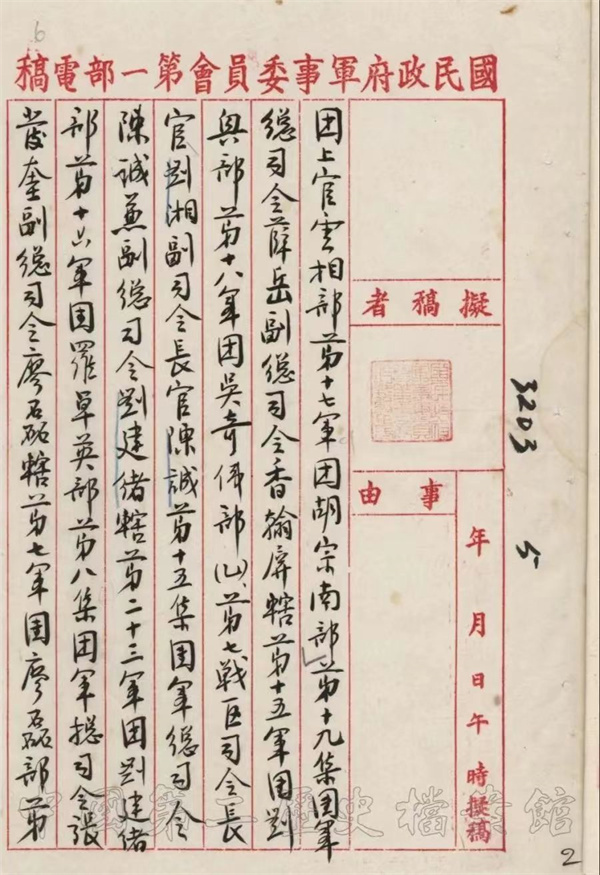 6
國民政府軍事委員會第一部電稿
擬稿者
事由
年月日午時擬稿
3203 5
团上官雲相部苐十七軍团胡宗南部苐十九集团軍
總司令薛岳副總司令香翰屏轄苐十五軍团劉
興部苐十八軍团吳奇偉部(乙)、苐七戰區司令長
官劉湘副司令長官陳誠苐十五集团軍總司令
陳誠兼副總司令劉建緒轄苐二十三軍团劉建緒
部苐十六軍团羅卓英部苐八集团軍總司令張
發奎副總司令廖磊轄苐七軍团廖磊部苐
中國第二歷史檔案館
2